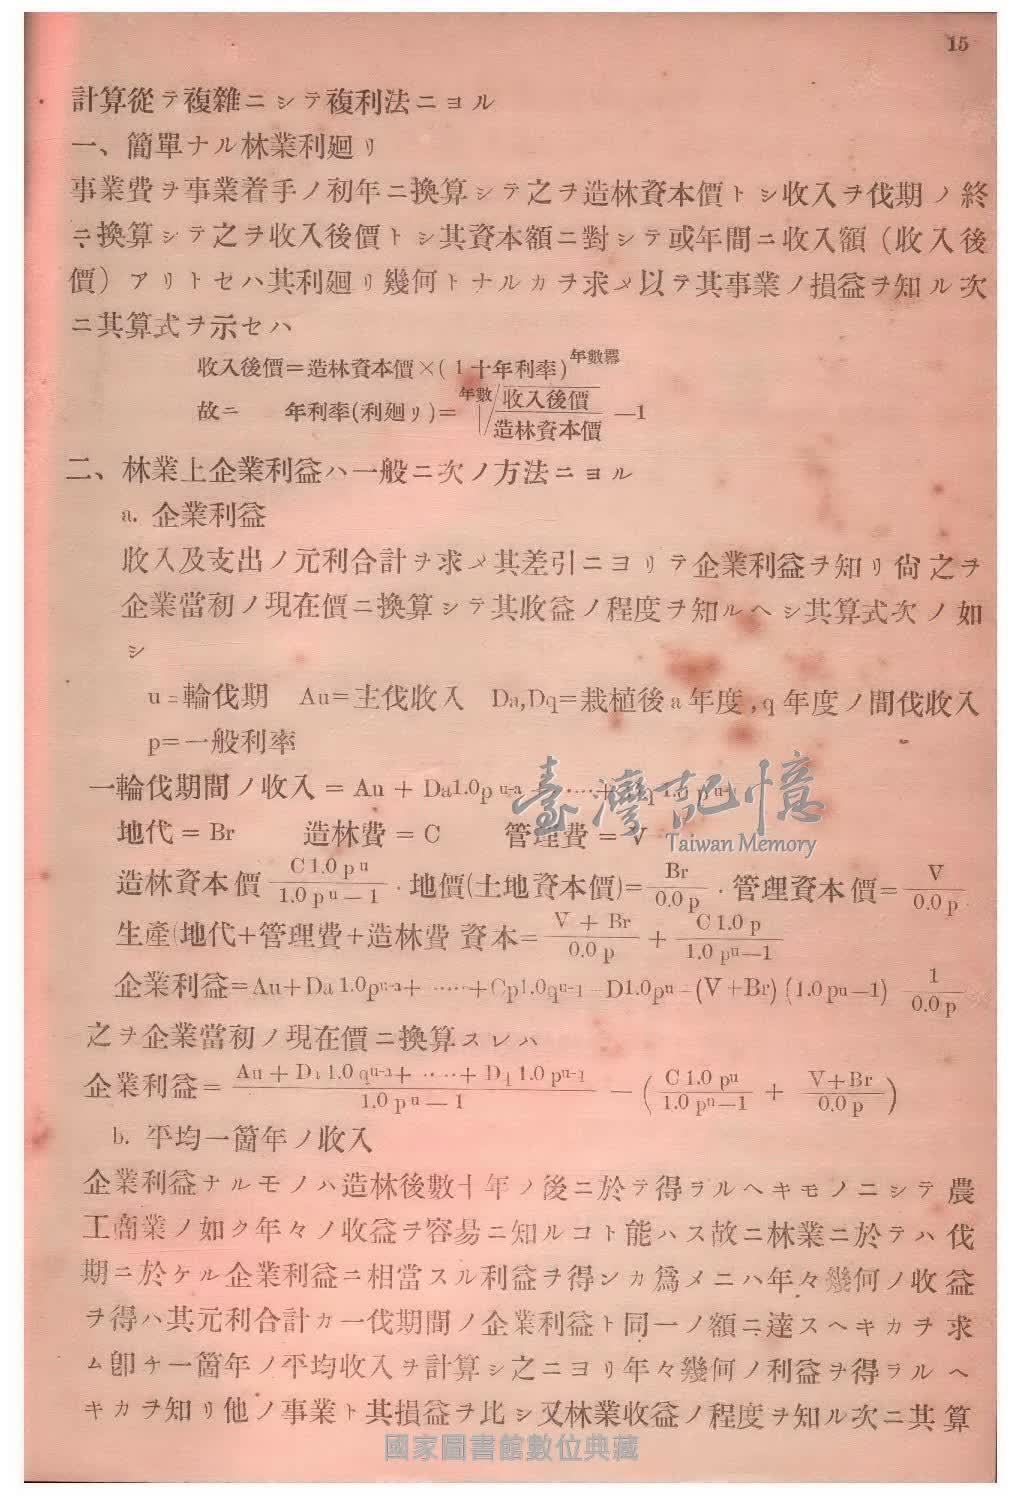 15
計算從テ複雜ニシテ複利法ニヨル
一、簡單ナル林業利廻リ
事業費ヲ事業着手ノ初年ニ換算シテ之ヲ造林資本價トシ收入ヲ伐期ノ終
ニ換算シテ之ヲ收入後價トシ其資本額ニ對シテ或年間ニ收入額（收入後
價）アリトセハ其利廻リ幾何トナルカヲ求メ以テ其事業ノ損益ヲ知ル次
ニ其算式ヲ示セハ
收入後價＝造林資本價×(1十年利率)年數冪
故ニ 年利率(利廻リ)＝年數√收入後價/造林資本價 —1
二、林業上企業利益ハ一般ニ次ノ方法ニヨル
a. 企業利益
收入及支出ノ元利合計ヲ求メ其差引ニヨリテ企業利益ヲ知リ尙之ヲ
企業當初ノ現在價ニ換算シテ其收益ノ程度ヲ知ルヘシ其算式次ノ如
シ
u=輪伐期 Au=主伐收入 Da,Dq=栽植後a年度,q年度ノ間伐收入
p=一般利率
一輪伐期間ノ收入 = Au + Da1.0p u-a
臺灣記憶
地代 = Br 造林費 = C 管理費 = V
Taiwan Memory
造林資本價 C1.0pu/1.0pu—1 . 地價(土地資本價)=Br/0.0p . 管理資本價=V/0.0p
生產(地代+管理費+造林費 資本=V + Br/0.0p + C1.0p/1.0pu—1
企業利益=Au+Da1.0pu-a+ ·····+Cp1.0qu-1—D1.0pu-(V+Br)(1.0pu—1) 1/0.0p
之ヲ企業當初ノ現在價ニ換算スレハ
企業利益= Au + D 1.0qu-a+ ····+ D 1.0pu-1/1.0pu—1 —(C1.0pu/1.0pu—1 + V+Br/0.0p)
b. 平均一箇年ノ收入
企業利益ナルモノハ造林後數十年ノ後ニ於テ得ラルヘキモノニシテ農
工商業ノ如ク年々ノ收益ヲ容易ニ知ルコト能ハス故ニ林業ニ於テハ伐
期ニ於ケル企業利益ニ相當スル利益ヲ得ンカ爲メニハ年々幾何ノ收益
ヲ得ハ其元利合計カ一伐期間ノ企業利益ト同一ノ額ニ達スヘキカヲ求
ム卽チ一箇年ノ平均收入ヲ計算シ之ニヨリ年々幾何ノ利益ヲ得ラルヘ
キカヲ知リ他ノ事業ト其損益ヲ比シ又林業收益ノ程度ヲ知ル次ニ其算
國家圖書館數位典藏